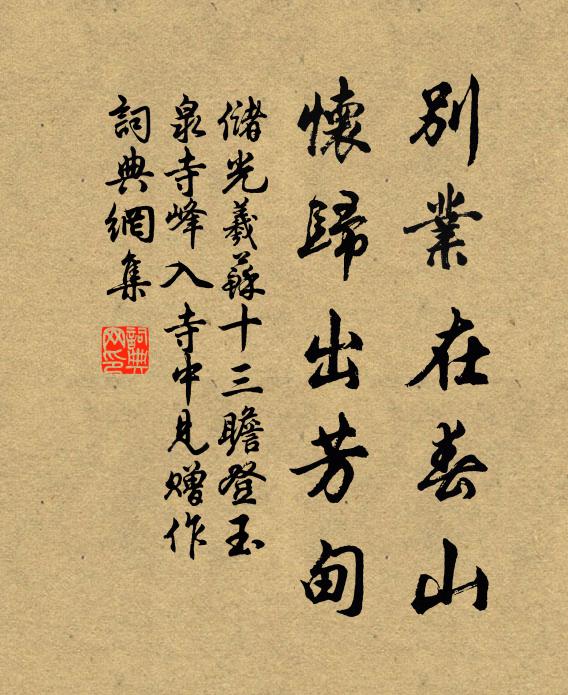 別業在春山
懷歸出芳甸
儲光羲蘇十三瞻登玉
泉寺峰入寺中見贈作
詞典網集
詞典网印